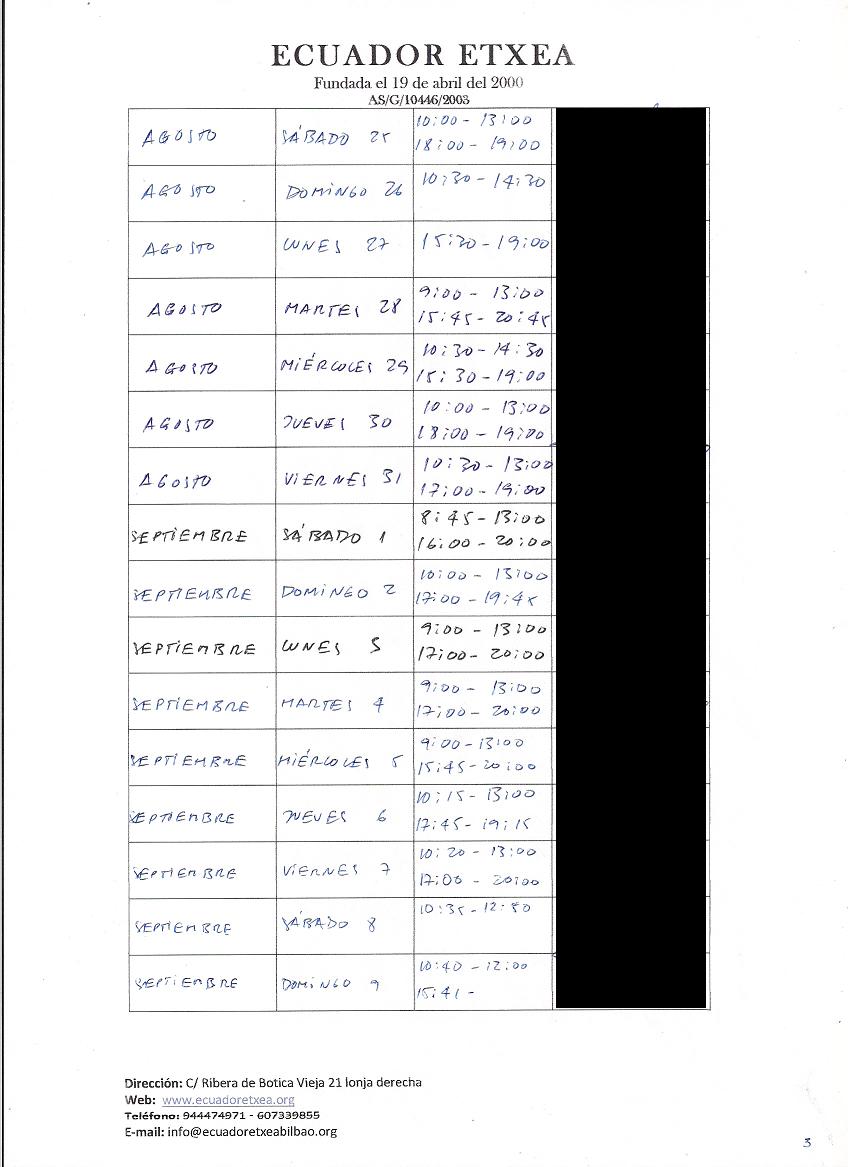 ECUADOR ETXEA
Fundada el 19 de abril del 2000
AS/G/10446/2003
AGOSTO SÁBADO 25 10:00 - 13:00
18:00 - 19:00
AGOSTO DOMINGO 26 10:30 - 14:30
AGOSTO LUNES 27 15:30 - 19:00
AGOSTO MARTES 28 9:00 - 13:00
15:45 - 20:45
AGOSTO MIÉRCOLES 29 10:30 - 14:30
15:30 - 19:00
AGOSTO JUEVES 30 10:00 - 13:00
18:00 - 19:00
AGOSTO VIERNES 31 10:30 - 13:00
17:00 - 19:00
SEPTIEMBRE SÁBADO 1 8:45 - 13:00
16:00 - 20:00
SEPTIEMBRE DOMINGO 2 10:00 - 13:00
17:00 - 19:45
SEPTIEMBRE LUNES 3 9:00 - 13:00
17:00 - 20:00
SEPTIEMBRE MARTES 4 9:00 - 13:00
17:00 - 20:00
SEPTIEMBRE MIÉRCOLES 5 9:00 - 13:00
15:45 - 20:00
SEPTIEMBRE JUEVES 6 10:15 - 13:00
17:45 - 19:15
SEPTIEMBRE VIERNES 7 10:20 - 13:00
17:00 - 20:00
SEPTIEMBRE SÁBADO 8 10:35 - 12:50
SEPTIEMBRE DOMINGO 9 10:40 - 12:00
15:41 -
Dirección: C/ Ribera de Botica Vieja 21 lonja derecha
Web: www.ecuadoretxea.org
Teléfono: 944474971 - 607339855
E-mail: info@ecuadoretxeabilbao.org
3